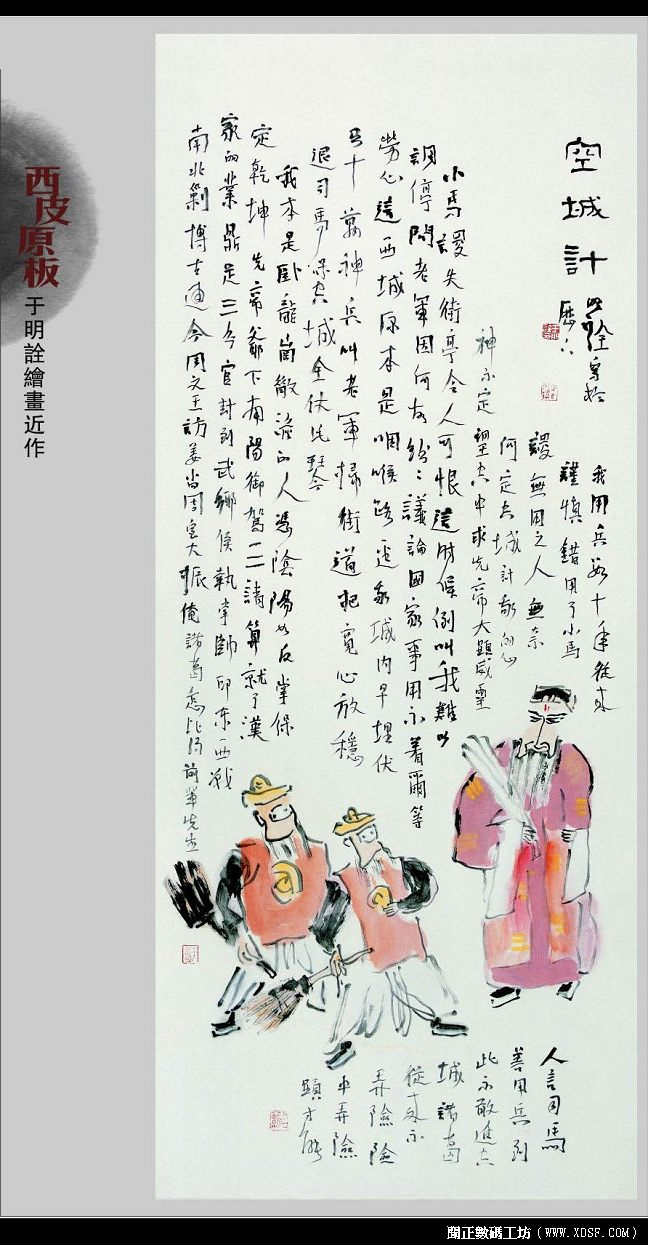 西皮原板
于明詮繪畫近作
空城計
明詮寫於
歷下
我用兵數十年從來
謹慎錯用了小馬
謖無用之人無奈
何定空城計我的心
神不定望空中求先帝大顯威靈
小馬謖失街亭令人可恨這時候倒叫我難以
調停問老軍因何故紛紛議論國家事用不着爾等
勞心這西城原本是咽喉路逕我城內早埋伏
百十萬神兵叫老軍掃街道把寬心放穩
退司馬保空城全仗此琴
我本是卧龍崗散淡的人憑陰陽如反掌保
定乾坤先帝爺下南陽御駕三請算就了漢
家的業鼎足三分官封到武鄉侯執掌帥印東西戰
南北剿博古通今周文王訪姜尚周室大振俺諸葛怎比得前輩先生
人言司馬
善用兵到
此不敢進空
城諸葛
從來不
弄險險
中弄險
顯才能
聞正數碼工坊（WWW.XDSF.COM）